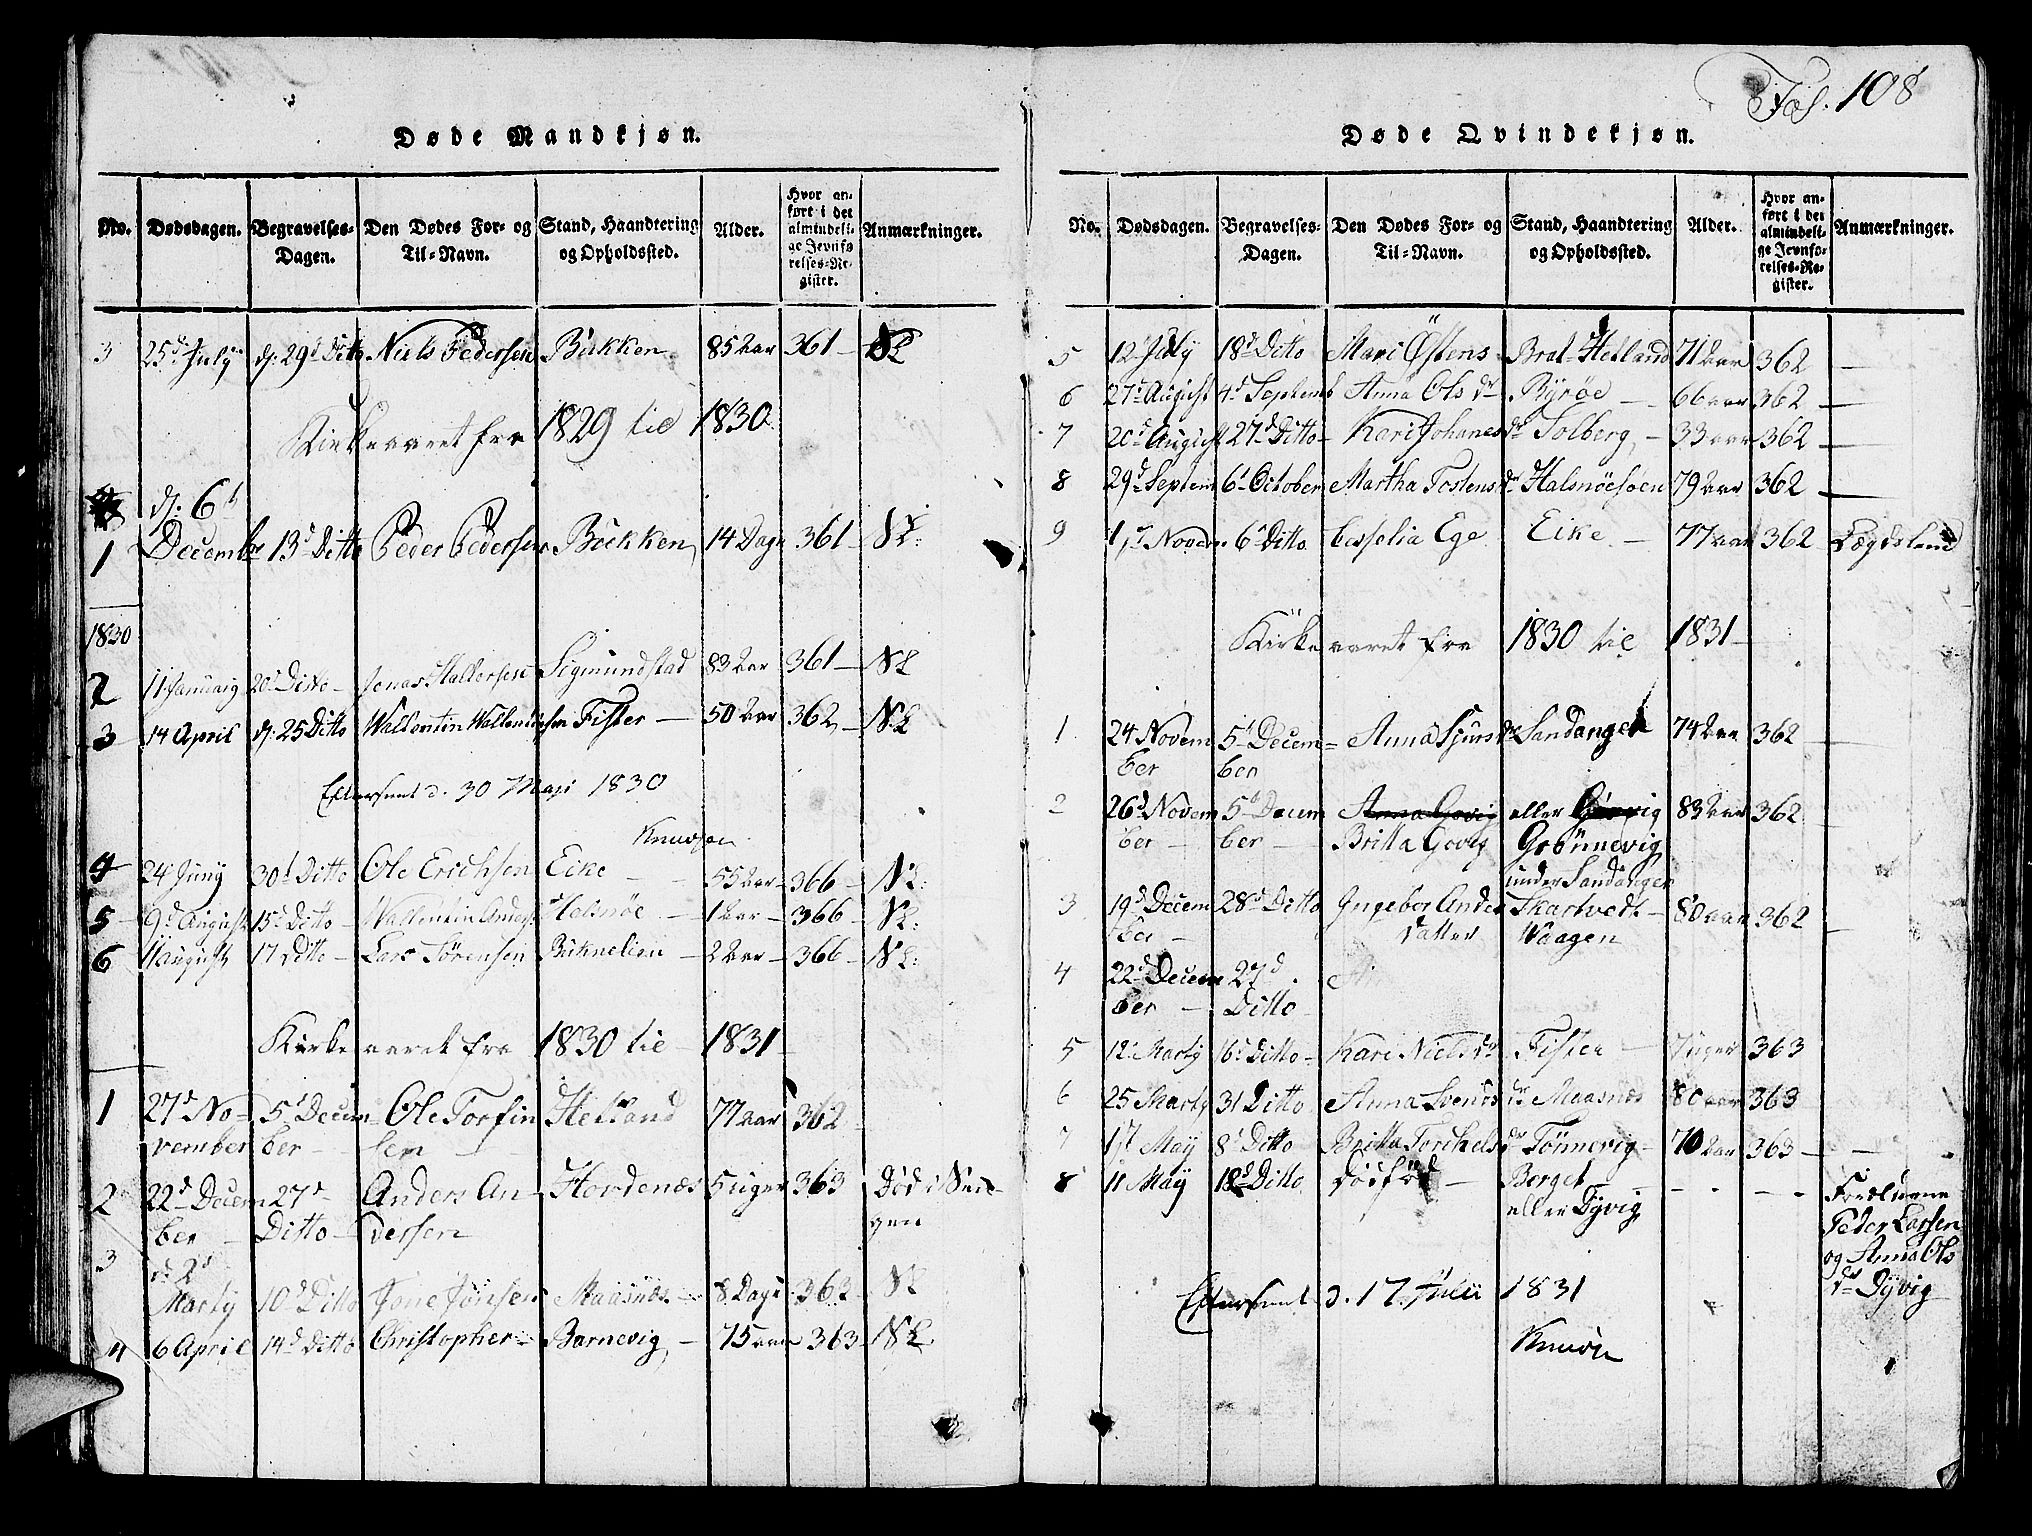 Fol. 108
Døde Mandkjøn.
No. Dødsdagen. Begravelses-Dagen. Den Dødes For- og Til-Navn. Stand, Haandtering og Opholdssted. Alder. Hvor anført i det almindelige Jevnførelses-Register. Anmærkninger.
3 25d July d. 29d Ditto Niels Pedersen Bukken 85 aar 361 NL
Kirkeaaret fra 1829 til 1830
d. 6t
1 December 13d Ditto Peder Pedersen Bukken 14 Dage 361 NL:
1830
2 11 Januarij 20d Ditto Jonas Hallorsen Sigmundstad 83 aar 361 NL
3 14 April d. 25 Ditto Wallentin Wallentinsen Fister 50 aar 362 NL
Efterseet d. 30 Maji 1830
Knudsen
4 24 Juny 30d Ditto Ole Erichsen Eike 55 aar 366 NL:
5 9d August 15d Ditto Wallentin Anders Helsnøe 1 aar 366 NL:
6 11 august 17 Ditto Lars Sørensen 2 aar 366 NL:
Kirkeaaret fra 1830 til 1831
1 27d No- 5t Decem- Ole Torfin Hetland 77 aar 362
vember ber sen
2 22d Decem 27d Anders An- Hordenæs 5 uger 363 Død i
ber Ditto dersen
3 d. 2d
Marty 10d Ditto Jone Jonsen Maasnæs 8 Dage 363 NL
4 6 April 14d Ditto Christopher Barnevig 75 aar 363 NL
Døde Qvindekjøn.
No. Dødsdagen. Begravelses-Dagen. Den Dødes For- og Til-Navn. Stand, Haandtering og Opholdssted. Alder. Hvor anført i det almindelige Jevnførelses-Register. Anmærkninger.
5 12 July 18d Ditto Mari Østens Hetland 71 aar 362
6 27d August 4d Septemb Anna Ols dr Byrøe 66 aar 362
7 20d August 27d Ditto Kari Johanes dr Solberg 33 aar 362
8 29d Septem 6t October Martha Tostens dr Halsnøesøen 79 aar 362
9 1st Novem 6t Ditto Ege Eike 77 aar 362 Lægdslem
Kirkeaaret fra 1830 til 1831
1 24 Novem 5t Decem- Anna Sjurs dr Sandanger 74 aar 362
ber ber
2 26d Novem 5t Decem Anna Govig eller 83 aar 362
ber ber Britta Govig Grönnevig
under Sandanger
3 19d Decem 28d Ditto Ingebor Anders Skartvedt 80 aar 362
ber datter Waagen
4 22d Decem 27d
ber Ditto
5 12 Marty 16d Ditto Kari Niels dr Fister 7 uger 363
6 25 Marty 31 Ditto Anna Svends dr Maasnæs 80 aar 363
7 1st May 8d Ditto Britta Torchels dr Tönnevig 70 aar 363
8 11 May 18d Ditto Dödföd Berget Forældrene
eller Dyvig Peder Larsen
og Anna Ols
dr Dyvig
Efterseet d. 17 Julii 1831
Knudsen